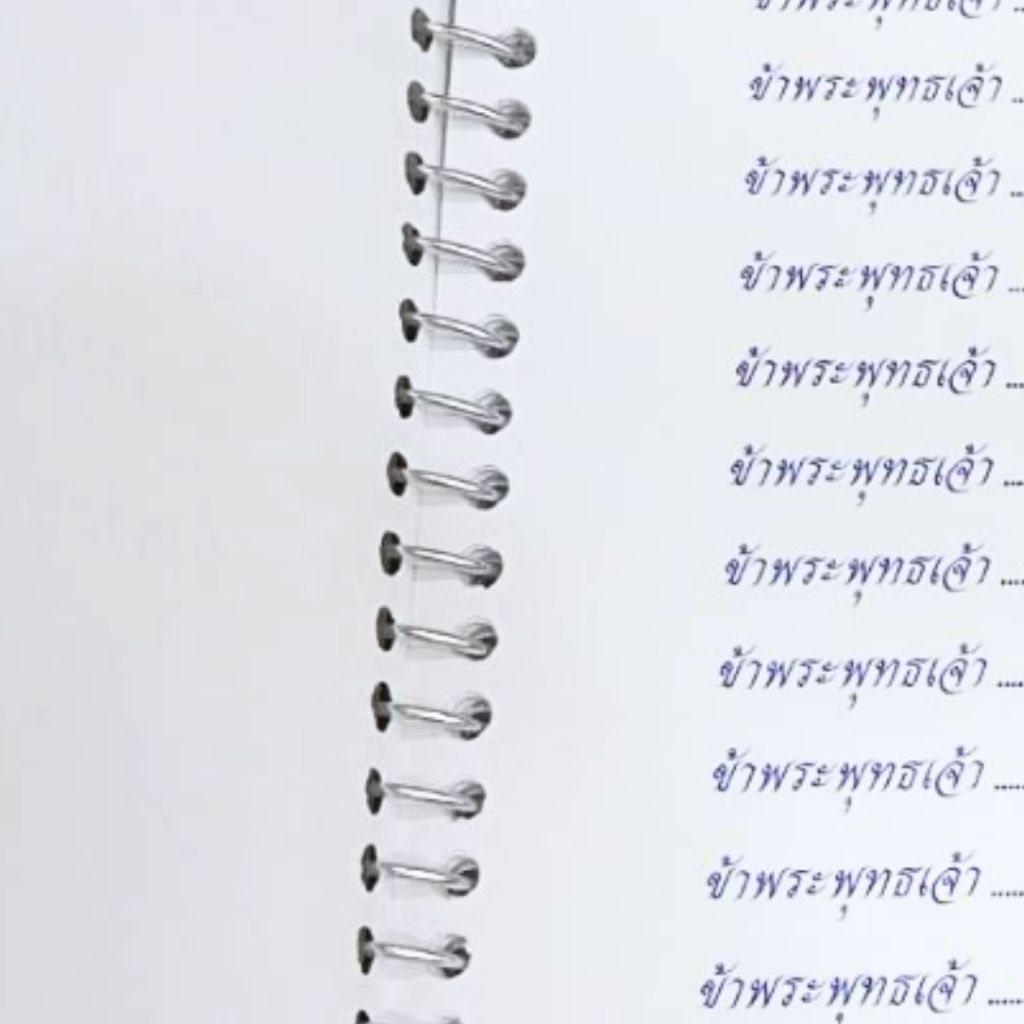 ข้าพระพุทธเจ้า ..
ข้าพระพุทธเจ้า ..
ข้าพระพุทธเจ้า ..
ข้าพระพุทธเจ้า ...
ข้าพระพุทธเจ้า ...
ข้าพระพุทธเจ้า ....
ข้าพระพุทธเจ้า ....
ข้าพระพุทธเจ้า ....
ข้าพระพุทธเจ้า .....
ข้าพระพุทธเจ้า .....
ข้าพระพุทธเจ้า ......